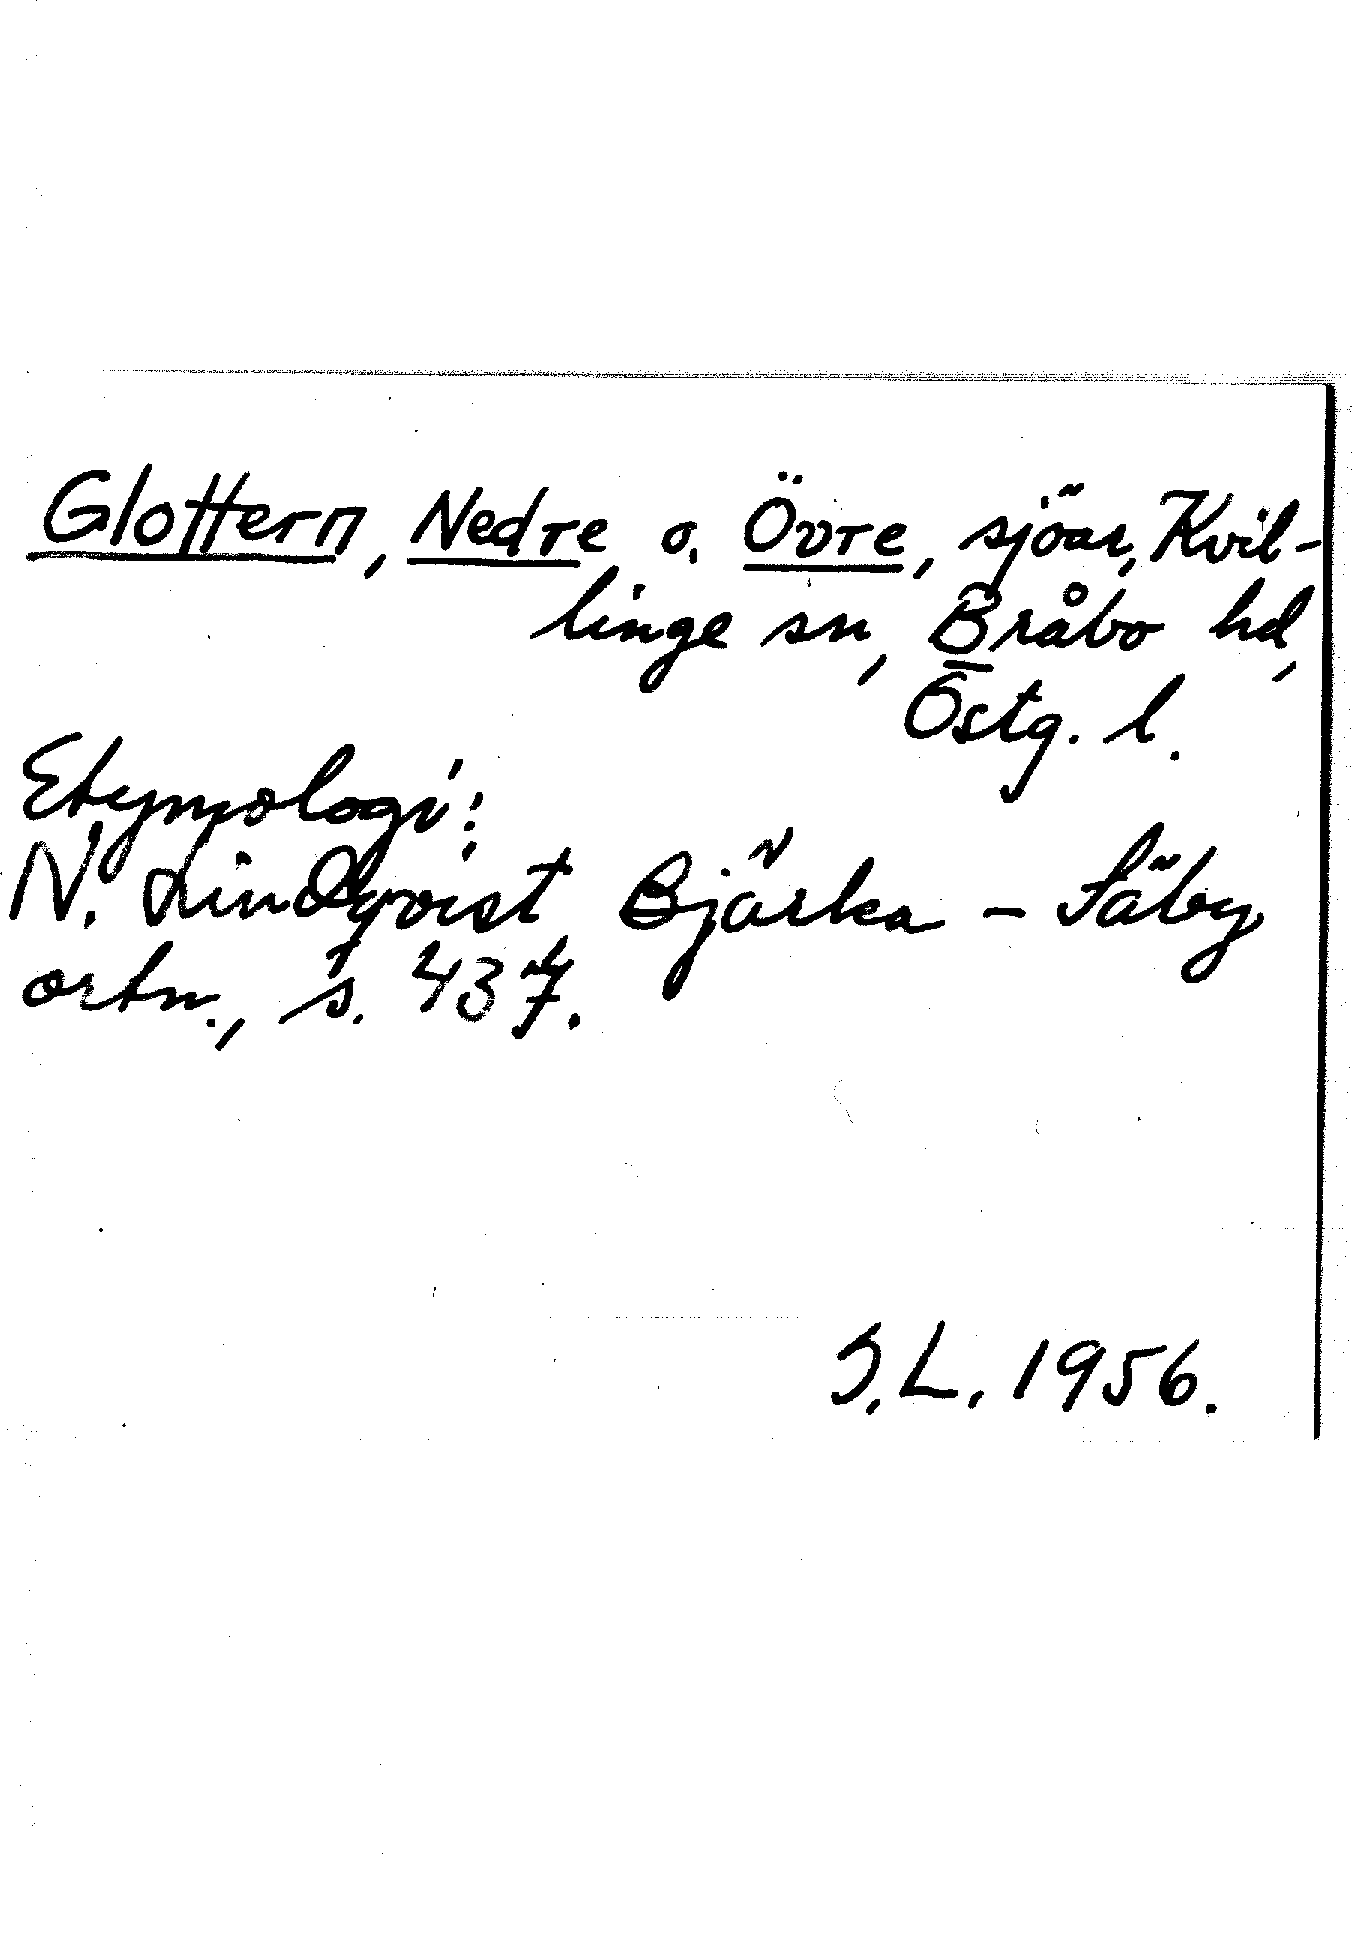 Glottern, Nedre o. Övre, sjöar, Kvil-
linge sn, Bråbo hd,
Östg. l.
Etymologi:
N. Lindqvist, Bjärka - Säby
ortn., s. 437.
J.L. 1956.